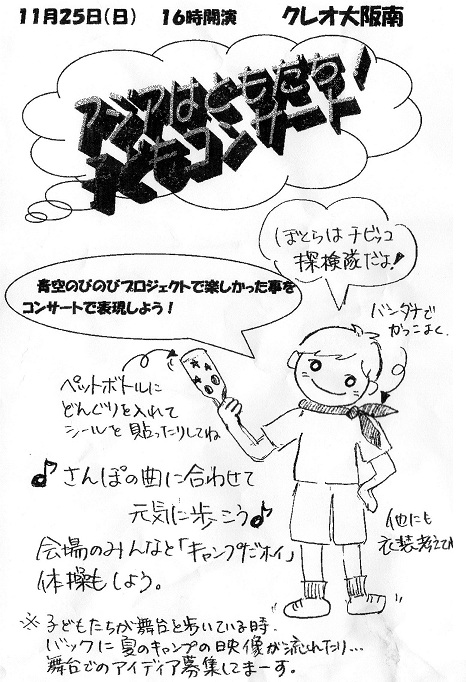 11月25日(日) 16時開演 クレオ大阪南
アジアはともだち!
子どもコンサート
ぼくらはチビッコ
探検隊だよ!
青空のびのびプロジェクトで楽しかった事を
コンサートで表現しよう!
バンダナで
かっこよく
ペットボトルに
どんぐりを入れて
シールを貼ったりしてね
さんぽの曲に合わせて
元気に歩こう
他にも
衣装考えてね
会場のみんなと「キャンプだホイ」
体操もしよう。
※子どもたちが舞台を歩いている時、
バックに夏のキャンプの映像が流れたり…
舞台でのアイディア募集してまーす。